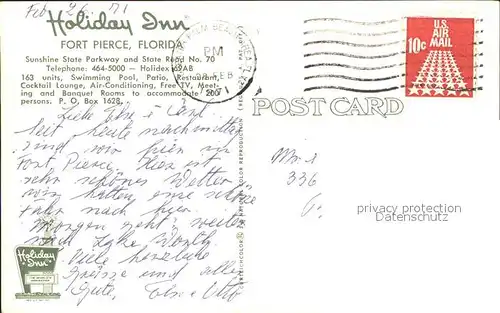 Feb. 26. 71
Holiday Inn
FORT PIERCE, FLORIDA
Sunshine State Parkway and State Road No. 70
Telephone: 464-5000 — Holidex 69AB
163 units, Swimming Pool, Patio, Restaurant,
Cocktail Lounge, Air-Conditioning, Free TV, Meet-
ing and Banquet Rooms to accommodate 200
persons. P. O. Box 1628.
PM
FEB
U.S.
AIR
MAIL
10c
POST CARD
Liebe
Seit heute nachmittag
sind wir hier in
Fort Pierce. Hier ist
sehr schönes Wetter
wir hatten eine schöne
Fahrt nach hier.
Morgen geht's weiter
nach Lake Worth.
Viele herzliche
Grüsse und alles
Gute, Otto
336
privacy protection
Datenschutz
Holiday
Inn